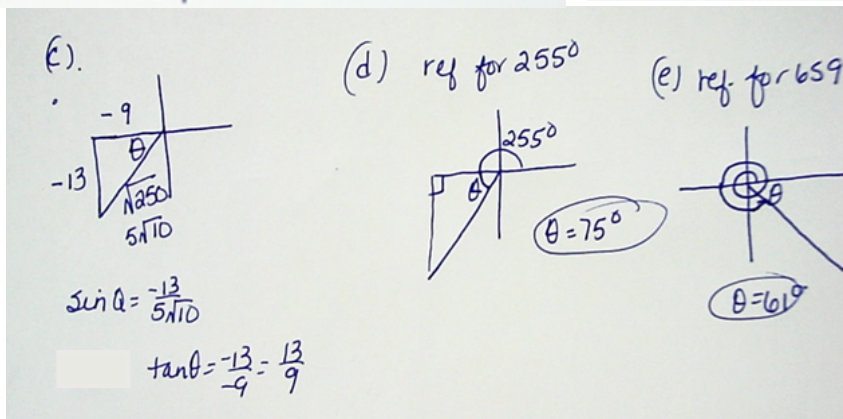 (c).
-9
θ
-13
√250
5√10
sin θ = -13/5√10
tanθ = -13/-9 = 13/9
(d) ref for 255°
255°
θ
θ = 75°
(e) ref. for 659
θ
θ = 61°